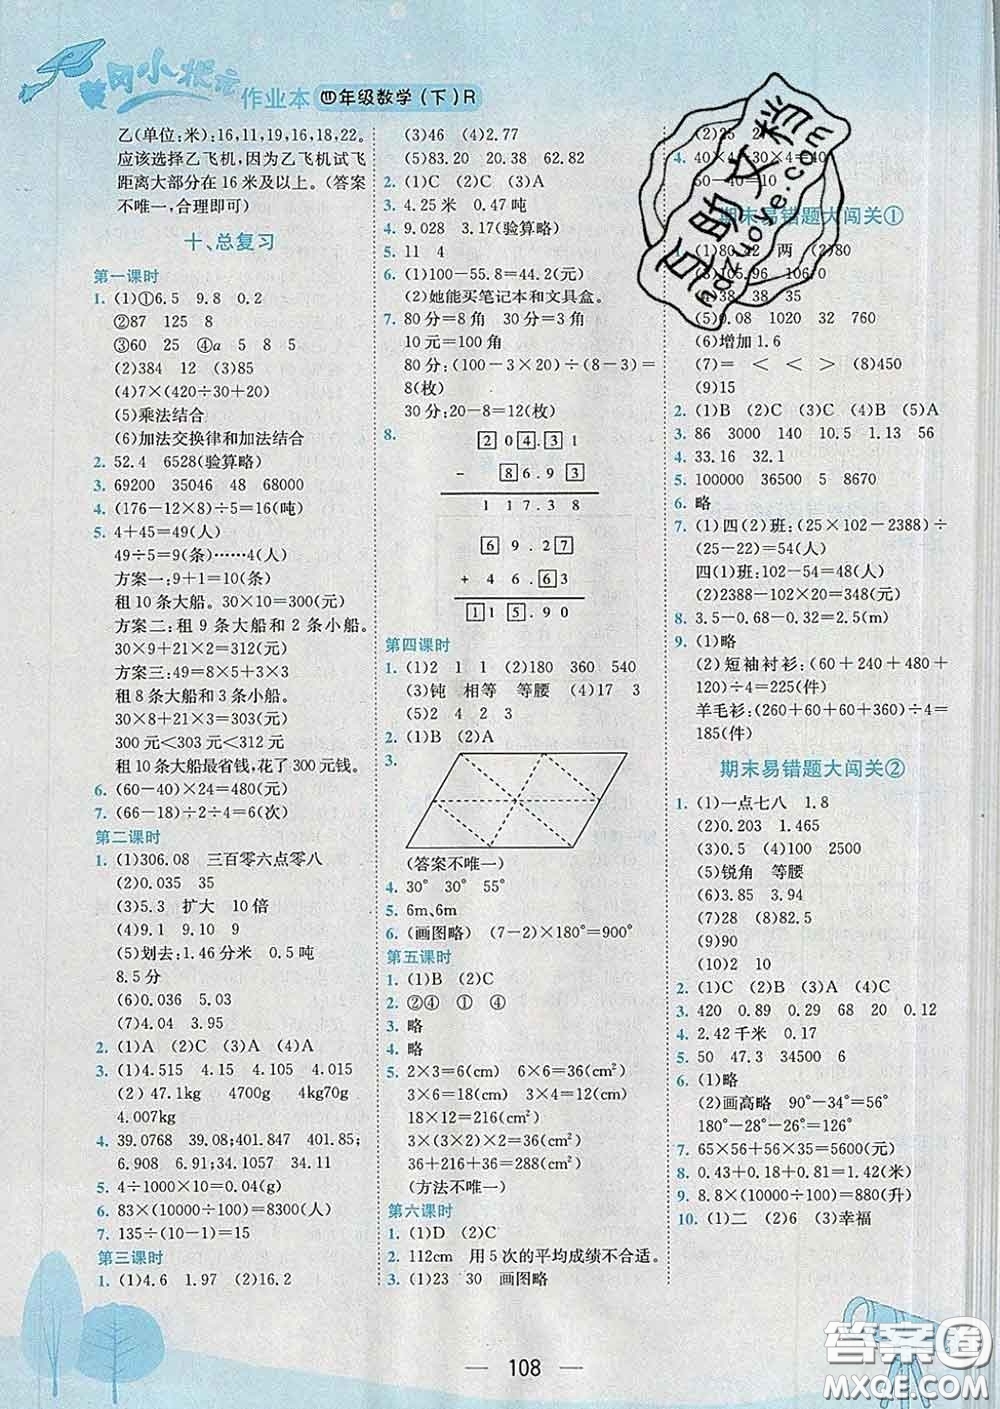 黄冈小状元作业本 四年级数学(下)R
乙(单位:米):16,11,19,16,18,22。
应该选择乙飞机,因为乙飞机试飞
距离大部分在16米及以上。(答案
不唯一,合理即可)
十、总复习
第一课时
1. (1)①6.5 9.8 0.2
②87 125 8
③60 25 ④a 5 8 5
(2)384 12 (3)85
(4)7×(420÷30+20)
(5)乘法结合
(6)加法交换律和加法结合
2. 52.4 6528(验算略)
3. 69200 35046 48 68000
4. (176-12×8)÷5=16(吨)
5. 4+45=49(人)
49÷5=9(条)……4(人)
方案一:9+1=10(条)
租10条大船。30×10=300(元)
方案二:租9条大船和2条小船。
30×9+21×2=312(元)
方案三:49=8×5+3×3
租8条大船和3条小船。
30×8+21×3=303(元)
300元<303元<312元
租10条大船最省钱,花了300元钱。
6. (60-40)×24=480(元)
7. (66-18)÷2÷4=6(次)
第二课时
1. (1)306.08 三百零六点零八
(2)0.035 35
(3)5.3 扩大 10倍
(4)9.1 9.10 9
(5)划去:1.46分米 0.5吨
8.5分
(6)0.036 5.03
(7)4.04 3.95
2. (1)A (2)C (3)A (4)A
3. (1)4.515 4.15 4.105 4.015
(2)47.1kg 4700g 4kg70g
4.007kg
4. 39.0768 39.08;401.847 401.85;
6.908 6.91;34.1057 34.11
5. 4÷1000×10=0.04(g)
6. 83×(10000÷100)=8300(人)
7. 135÷(10-1)=15
第三课时
1. (1)4.6 1.97 (2)16.2
(3)46 (4)2.77
(5)83.20 20.38 62.82
2. (1)C (2)C (3)A
3. 4.25米 0.47吨
4. 9.028 3.17(验算略)
5. 11 4
6. (1)100-55.8=44.2(元)
(2)她能买笔记本和文具盒。
7. 80分=8角 30分=3角
10元=100角
80分:(100-3×20)÷(8-3)=
8(枚)
30分:20-8=12(枚)
8. 2 0 4 . 3 1
- 8 6 . 9 3
1 1 7 . 3 8
6 9 . 2 7
+ 4 6 . 6 3
1 1 5 . 9 0
第四课时
1. (1)2 1 1 (2)180 360 540
(3)钝 相等 等腰 (4)17 3
(5)2 4 2 3
2. (1)B (2)A
3.
(答案不唯一)
4. 30° 30° 55°
5. 6m、6m
6. (画图略) (7-2)×180°=900°
第五课时
1. (1)B (2)C
2. ②④ ① ④
3. 略
4. 略
5. 2×3=6(cm) 6×6=36(cm²)
3×6=18(cm) 3×4=12(cm)
18×12=216(cm²)
3×(3×2)×2=36(cm²)
36+216+36=288(cm²)
(方法不唯一)
第六课时
1. (1)D (2)C
2. 112cm 用5次的平均成绩不合适。
3. (1)23 30 画图略
(2)25
4. 40×4-30×4=40
60-40=10
期末易错题大闯关①
(1)80.42 两 (2)80
(3)105.96 106.0
38 38 35
(5)0.08 1020 32 760
(6)增加1.6
(7)= < < > (8)450
(9)15
2. (1)B (2)C (3)C (4)B (5)A
3. 86 3000 140 10.5 1.13 56
4. 33.16 32.1
5. 100000 36500 65 9870
6. 略
7. (1)四(2)班:(25×102-2388)÷
(25-22)=54(人)
四(1)班:102-54=48(人)
(2)2388-102×20=348(元)
8. 3.5-0.68-0.32=2.5(m)
9. (1)略
(2)短袖衬衫:(60+240+480+
120)÷4=225(件)
羊毛衫:(260+60+60+360)÷4=
185(件)
期末易错题大闯关②
1. (1)一点七八 1.8
(2)0.203 1.465
(3)0.5 (4)100 2500
(5)锐角 等腰
(6)3.85 3.94
(7)28 (8)82.5
(9)90
(10)2 10
2. (1)C (2)B (3)A (4)C
3. 420 0.89 0.29 68 20 12
4. 2.42千米 0.17
5. 50 47.3 34500 6
6. (1)略
(2)画高略 90°-34°=56°
180°-28°-26°=126°
7. 65×56+56×35=5600(元)
8. 0.43+0.18+0.81=1.42(米)
9. 8.8×(1000÷10)=880(升)
10. (1)二 (2)6 (3)幸福
108
答案圈
MXQE.COM